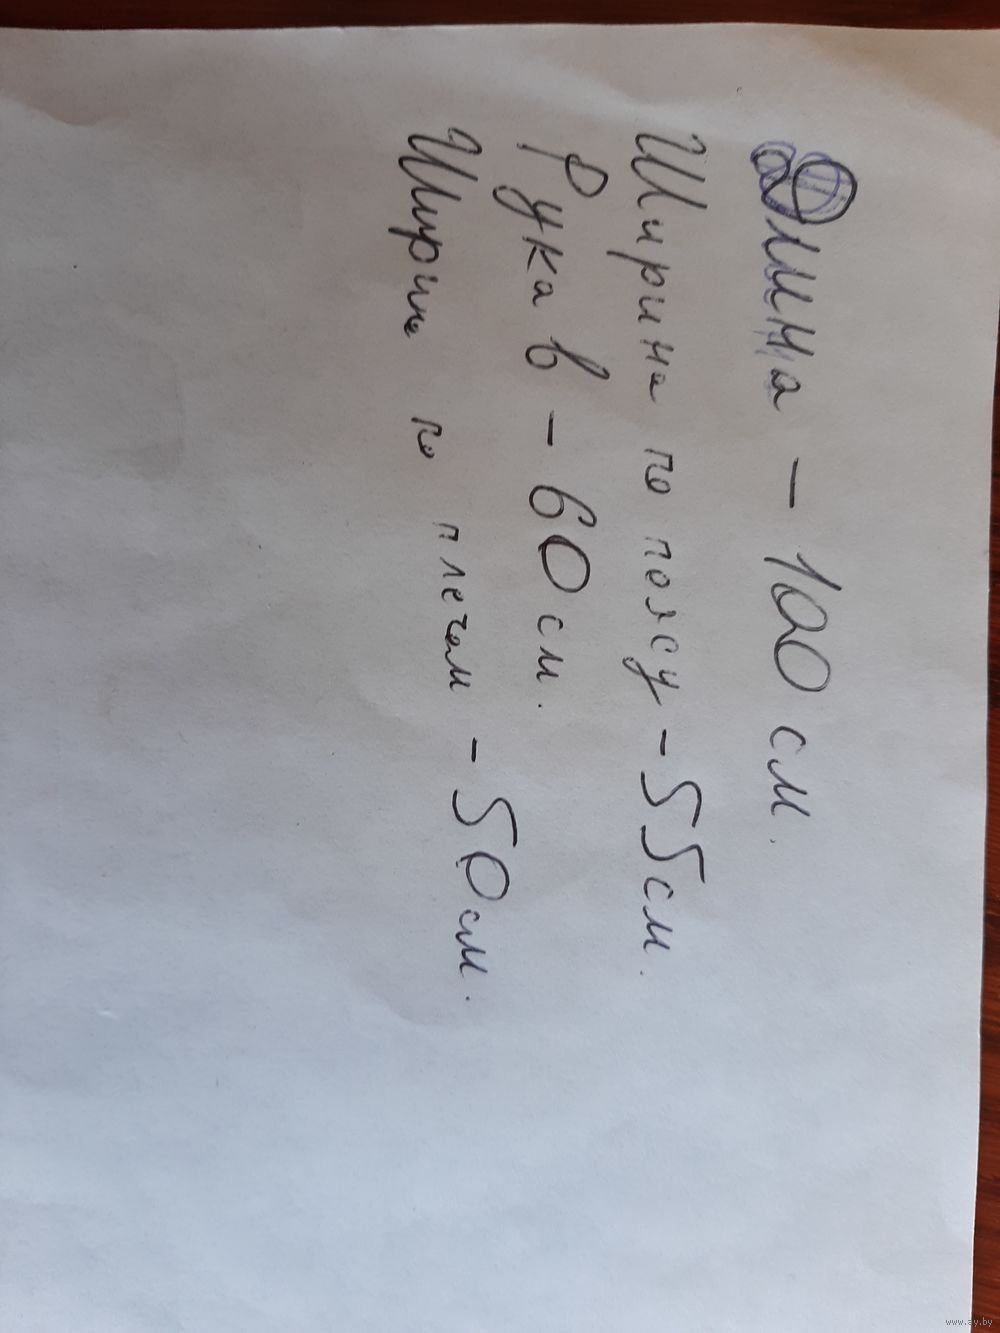 Длина - 100 см.
Ширина по поясу - 55 см.
Рукав - 60 см.
Ширина по плечам - 50 см.
www.ay.by